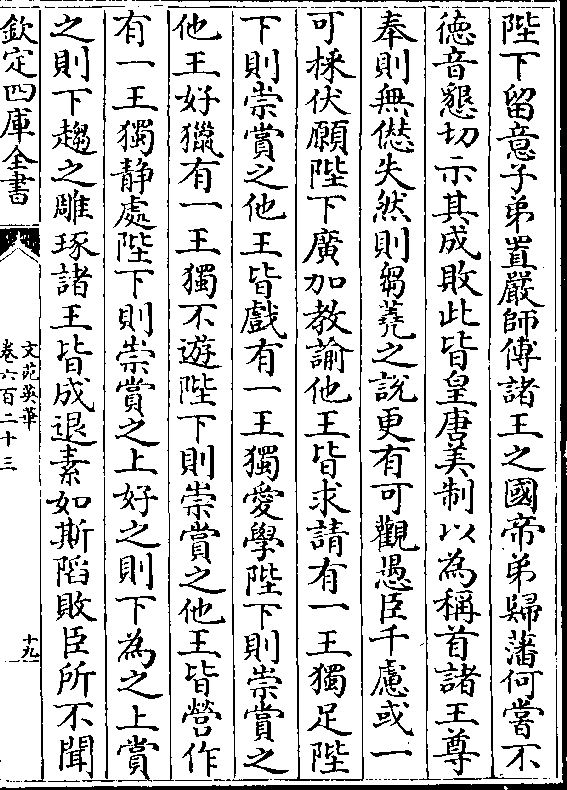 陛下留意子弟置嚴師傅諸王之國帝弟歸藩何嘗不
德音懇切示其成敗此皆皇唐美制以為稱首諸王尊
奉則無愆失然則芻蕘之說更有可觀愚臣千慮或一
可採伏願陛下廣加教諭他王皆求請有一王獨足陛
下則崇賞之他王皆戲有一王獨愛學陛下則崇賞之
他王好獵有一王獨不遊陛下則崇賞之他王皆營作
有一王獨静處陛下則崇賞之上好之則下為之上賞
之則下趨之雕琢諸王皆成退素如斯䧟敗臣所不聞
欽定四庫全書
文苑英華
卷六百二十三
十九